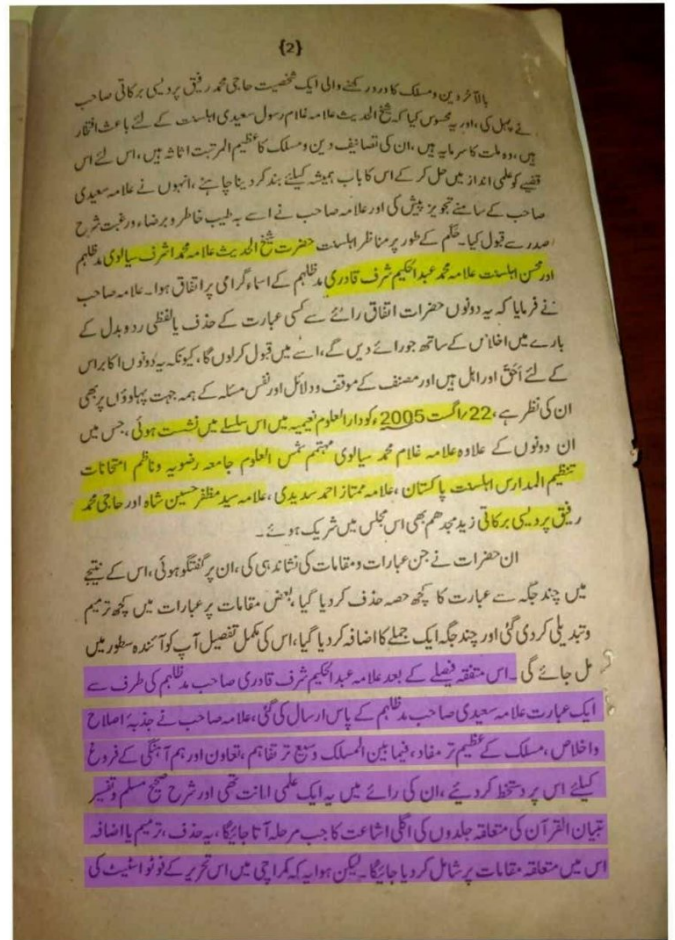 {2}
بالآخر دین و مسلک کا درد رکھنے والی ایک شخصیت حاجی محمد رفیق پردیسی برکاتی صاحب
نے پہل کی، اور یہ محسوس کیا کہ شیخ الحدیث علامہ غلام رسول سعیدی اہلسنت کے لئے باعث افتخار
ہیں، وہ ملت کا سرمایہ ہیں، ان کی تصانیف دین و مسلک کا عظیم المرتبت اثاثہ ہیں، اس لئے اس
قضیے کو علمی انداز میں حل کر کے اس کا باب ہمیشہ کیلئے بند کر دینا چاہئے، انہوں نے علامہ سعیدی
صاحب کے سامنے تجویز پیش کی اور علامہ صاحب نے اسے بہ طیب خاطر و برضاء و رغبت شرح
صدر سے قبول کیا۔ حَکَم کے طور پر مناظر اہلسنت حضرت شیخ الحدیث علامہ محمد اشرف سیالوی مدظلہم
اور محسن اہلسنت علامہ محمد عبدالحکیم شرف قادری مدظلہم کے اسماء گرامی پر اتفاق ہوا۔ علامہ صاحب
نے فرمایا کہ یہ دونوں حضرات اتفاق رائے سے کسی عبارت کے حذف یا لفظی رد و بدل کے
بارے میں اخلاص کے ساتھ جو رائے دیں گے، اسے میں قبول کرلوں گا، کیونکہ یہ دونوں اکابر اس
کے لئے اَحَقّ اور اہل ہیں اور مصنف کے موقف و دلائل اور نفس مسئلہ کے ہمہ جہت پہلوؤں پر بھی
ان کی نظر ہے، 22/اگست 2005ء کو دارالعلوم نعیمیہ میں اس سلسلے میں نشست ہوئی، جس میں
ان دونوں کے علاوہ علامہ غلام محمد سیالوی مہتمم شمس العلوم جامعہ رضویہ و ناظم امتحانات
تنظیم المدارس اہلسنت پاکستان، علامہ ممتاز احمد سدیدی، علامہ سید مظفر حسین شاہ اور حاجی محمد
رفیق پردیسی برکاتی زید مجدھم بھی اس مجلس میں شریک ہوئے۔
ان حضرات نے جن عبارات و مقامات کی نشاندہی کی، ان پر گفتگو ہوئی، اس کے نتیجے
میں چند جگہ سے عبارت کا کچھ حصہ حذف کر دیا گیا، بعض مقامات پر عبارات میں کچھ ترمیم
و تبدیلی کر دی گئی اور چند جگہ ایک جملے کا اضافہ کر دیا گیا، اس کی مکمل تفصیل آپ کو آئندہ سطور میں
مل جائے گی۔ اس متفقہ فیصلے کے بعد علامہ عبدالحکیم شرف قادری صاحب مدظلہم کی طرف سے
ایک عبارت علامہ سعیدی صاحب مدظلہم کے پاس ارسال کی گئی، علامہ صاحب نے جذبۂ اصلاح
و اخلاص، مسلک کے عظیم تر مفاد، فیما بین المسلک وسیع تر تفاہم، تعاون اور ہم آہنگی کے فروغ
کیلئے اس پر دستخط کر دیئے، ان کی رائے میں یہ ایک علمی امانت تھی اور شرح صحیح مسلم و تفسیر
تبیان القرآن کی متعلقہ جلدوں کی اگلی اشاعت کا جب مرحلہ آتا جائیگا، یہ حذف، ترمیم یا اضافہ
اس میں متعلقہ مقامات پر شامل کر دیا جائیگا۔ لیکن ہوا یہ کہ کراچی میں اس تحریر کے فوٹو اسٹیٹ کی